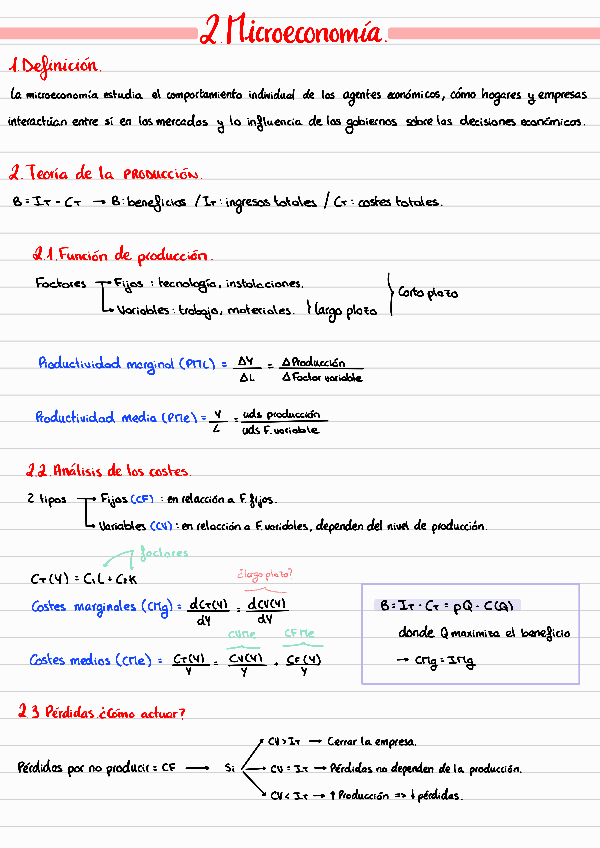 2. Microeconomía.
1. Definición.
La microeconomía estudia el comportamiento individual de los agentes económicos, cómo hogares y empresas
interactúan entre sí en los mercados y la influencia de los gobiernos sobre las decisiones económicas.
2. Teoría de la PRODUCCIÓN.
B = IT - CT → B: beneficios / IT: ingresos totales / CT: costes totales.
2.1. Función de producción.
Factores → Fijos : tecnología, instalaciones.
→ Variables : trabajo, materiales. } largo plazo } Corto plazo
Productividad marginal (PML) = ΔY / ΔL = ΔProducción / ΔFactor variable
Productividad media (PMe) = Y / L = uds producción / uds F. variable
2.2. Análisis de los costes.
2 tipos → Fijos (CF) : en relacción a F. fijos.
→ Variables (CV) : en relacción a F. variables, dependen del nivel de producción.
factores
CT(Y) = C₁L + C₂K
¿largo plazo?
Costes marginales (CMg) = dCT(Y) / dY = dCV(Y) / dY
CVMe CFMe
Costes medios (CMe) = CT(Y) / Y = CV(Y) / Y + CF(Y) / Y
B = IT - CT = pQ - C(Q)
donde Q maximiza el beneficio
→ CMg = IMg
2.3 Pérdidas ¿Cómo actuar?
Pérdidas por no producir = CF → Si
CV > IT → Cerrar la empresa.
CV = IT → Pérdidas no dependen de la producción.
CV < IT → ↑ Producción => ↓ pérdidas.